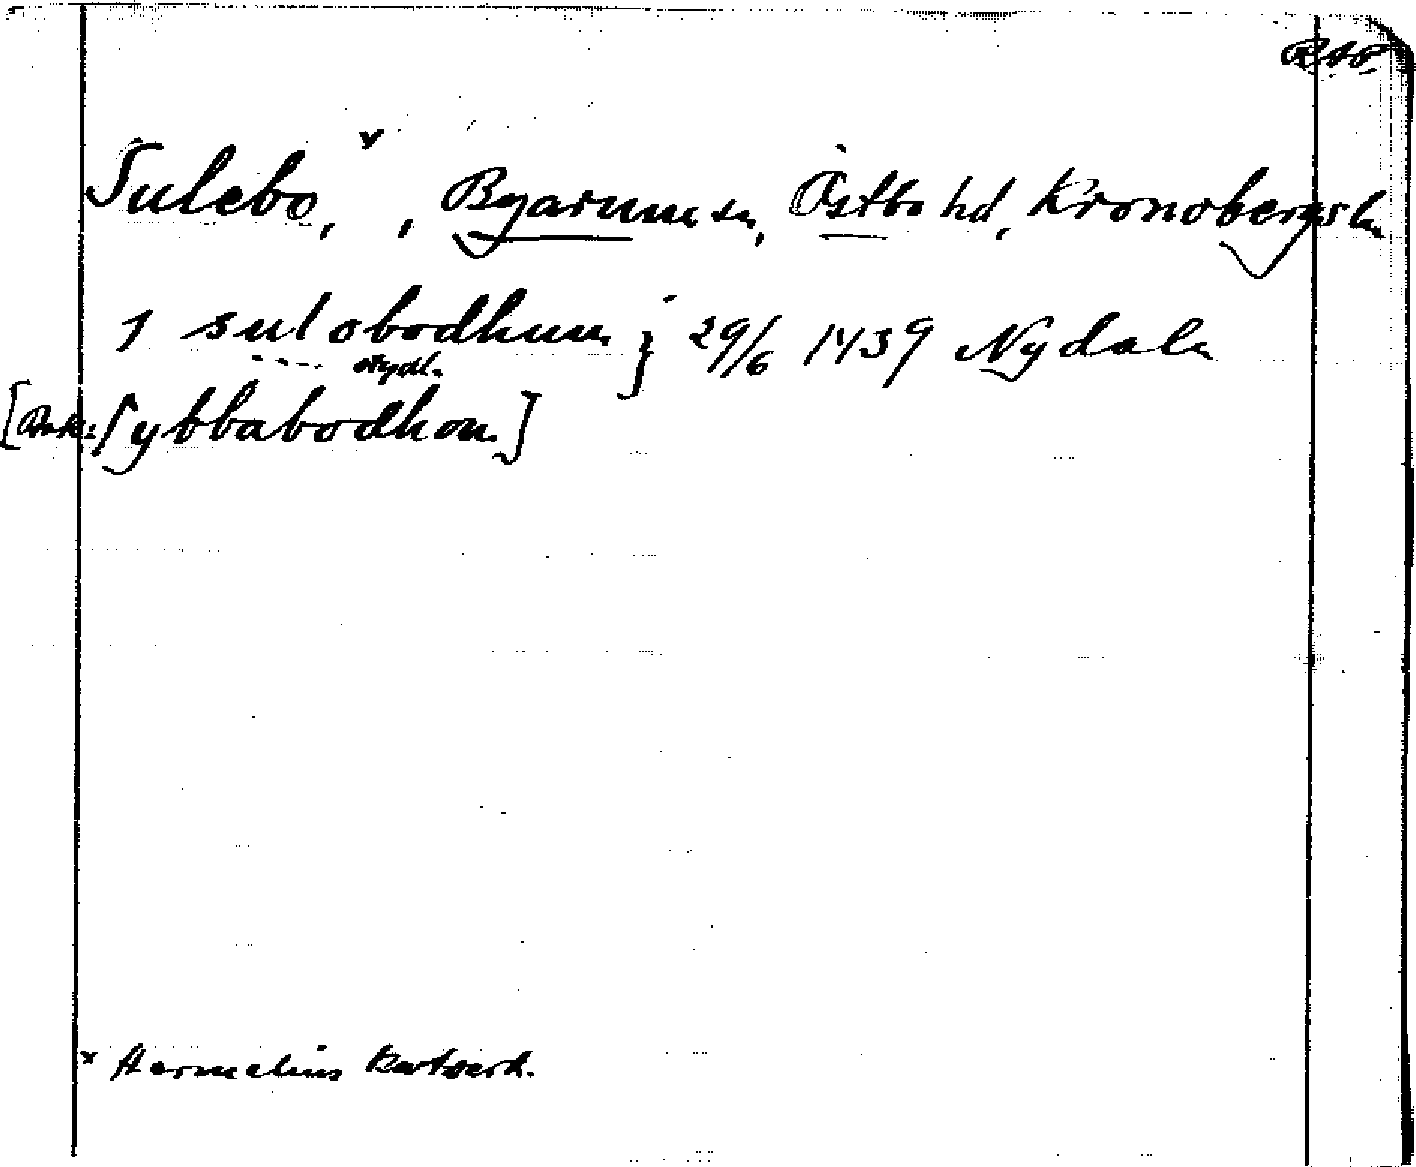 RAP.
Sulebo, ˣ, Byarums sn, Östbo hd, Kronobergs l.
j sulobodhum j 29/6 1439 Nydala
otydl.
Sybbabodhom]
x Hermelins Kartverk.